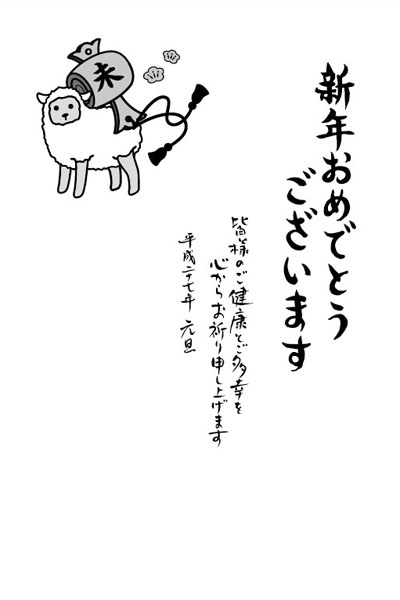 新年おめでとう
ございます
皆様のご健康とご多幸を
心からお祈り申し上げます
平成二十七年 元旦
未